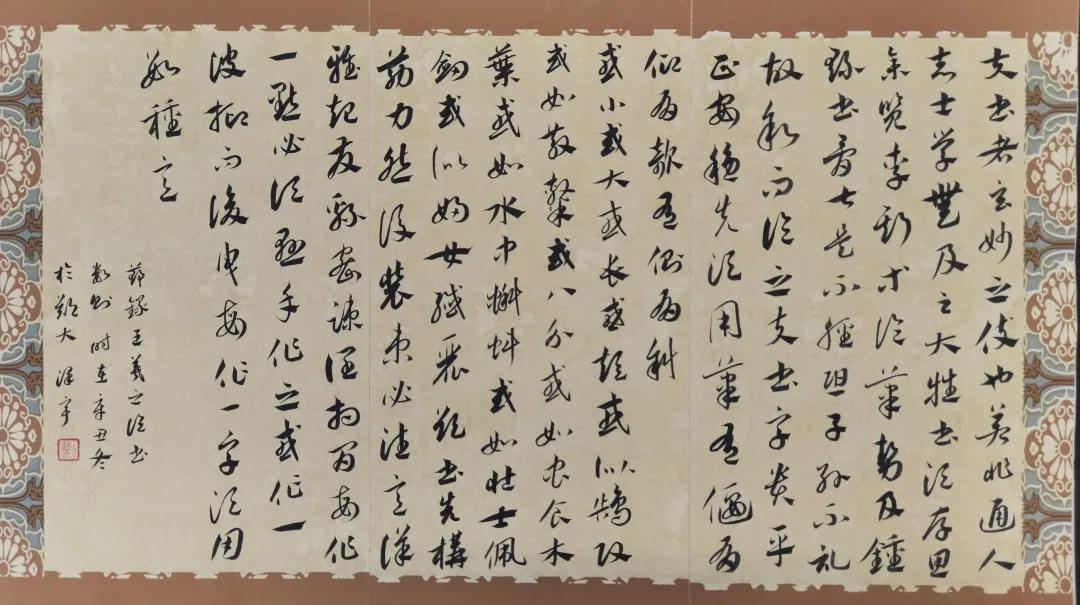 夫书者玄妙之伎也若非通人
志士学無及之大抵书须存思
余览李斯等论筆势及鍾
繇书骨甚是不轻恐子孙不记
故叙而论之夫书字贵平
正安稳先须用筆有偃有
仰有欹有侧有斜
或小或大或长或短或似鹄头
或如散隸或八分或如虫食木
葉或如水中蝌蚪或如壮士佩
剑或似妇女纖麗欲书先構
筋力然後装束必注意详
雅起发绵密疎阔相间每作
一點必须悬手作之或作一
波抑而後曳每作一字须用
数種意
節録王羲之论书
数则 时在辛丑冬
於鄭大 泽宇